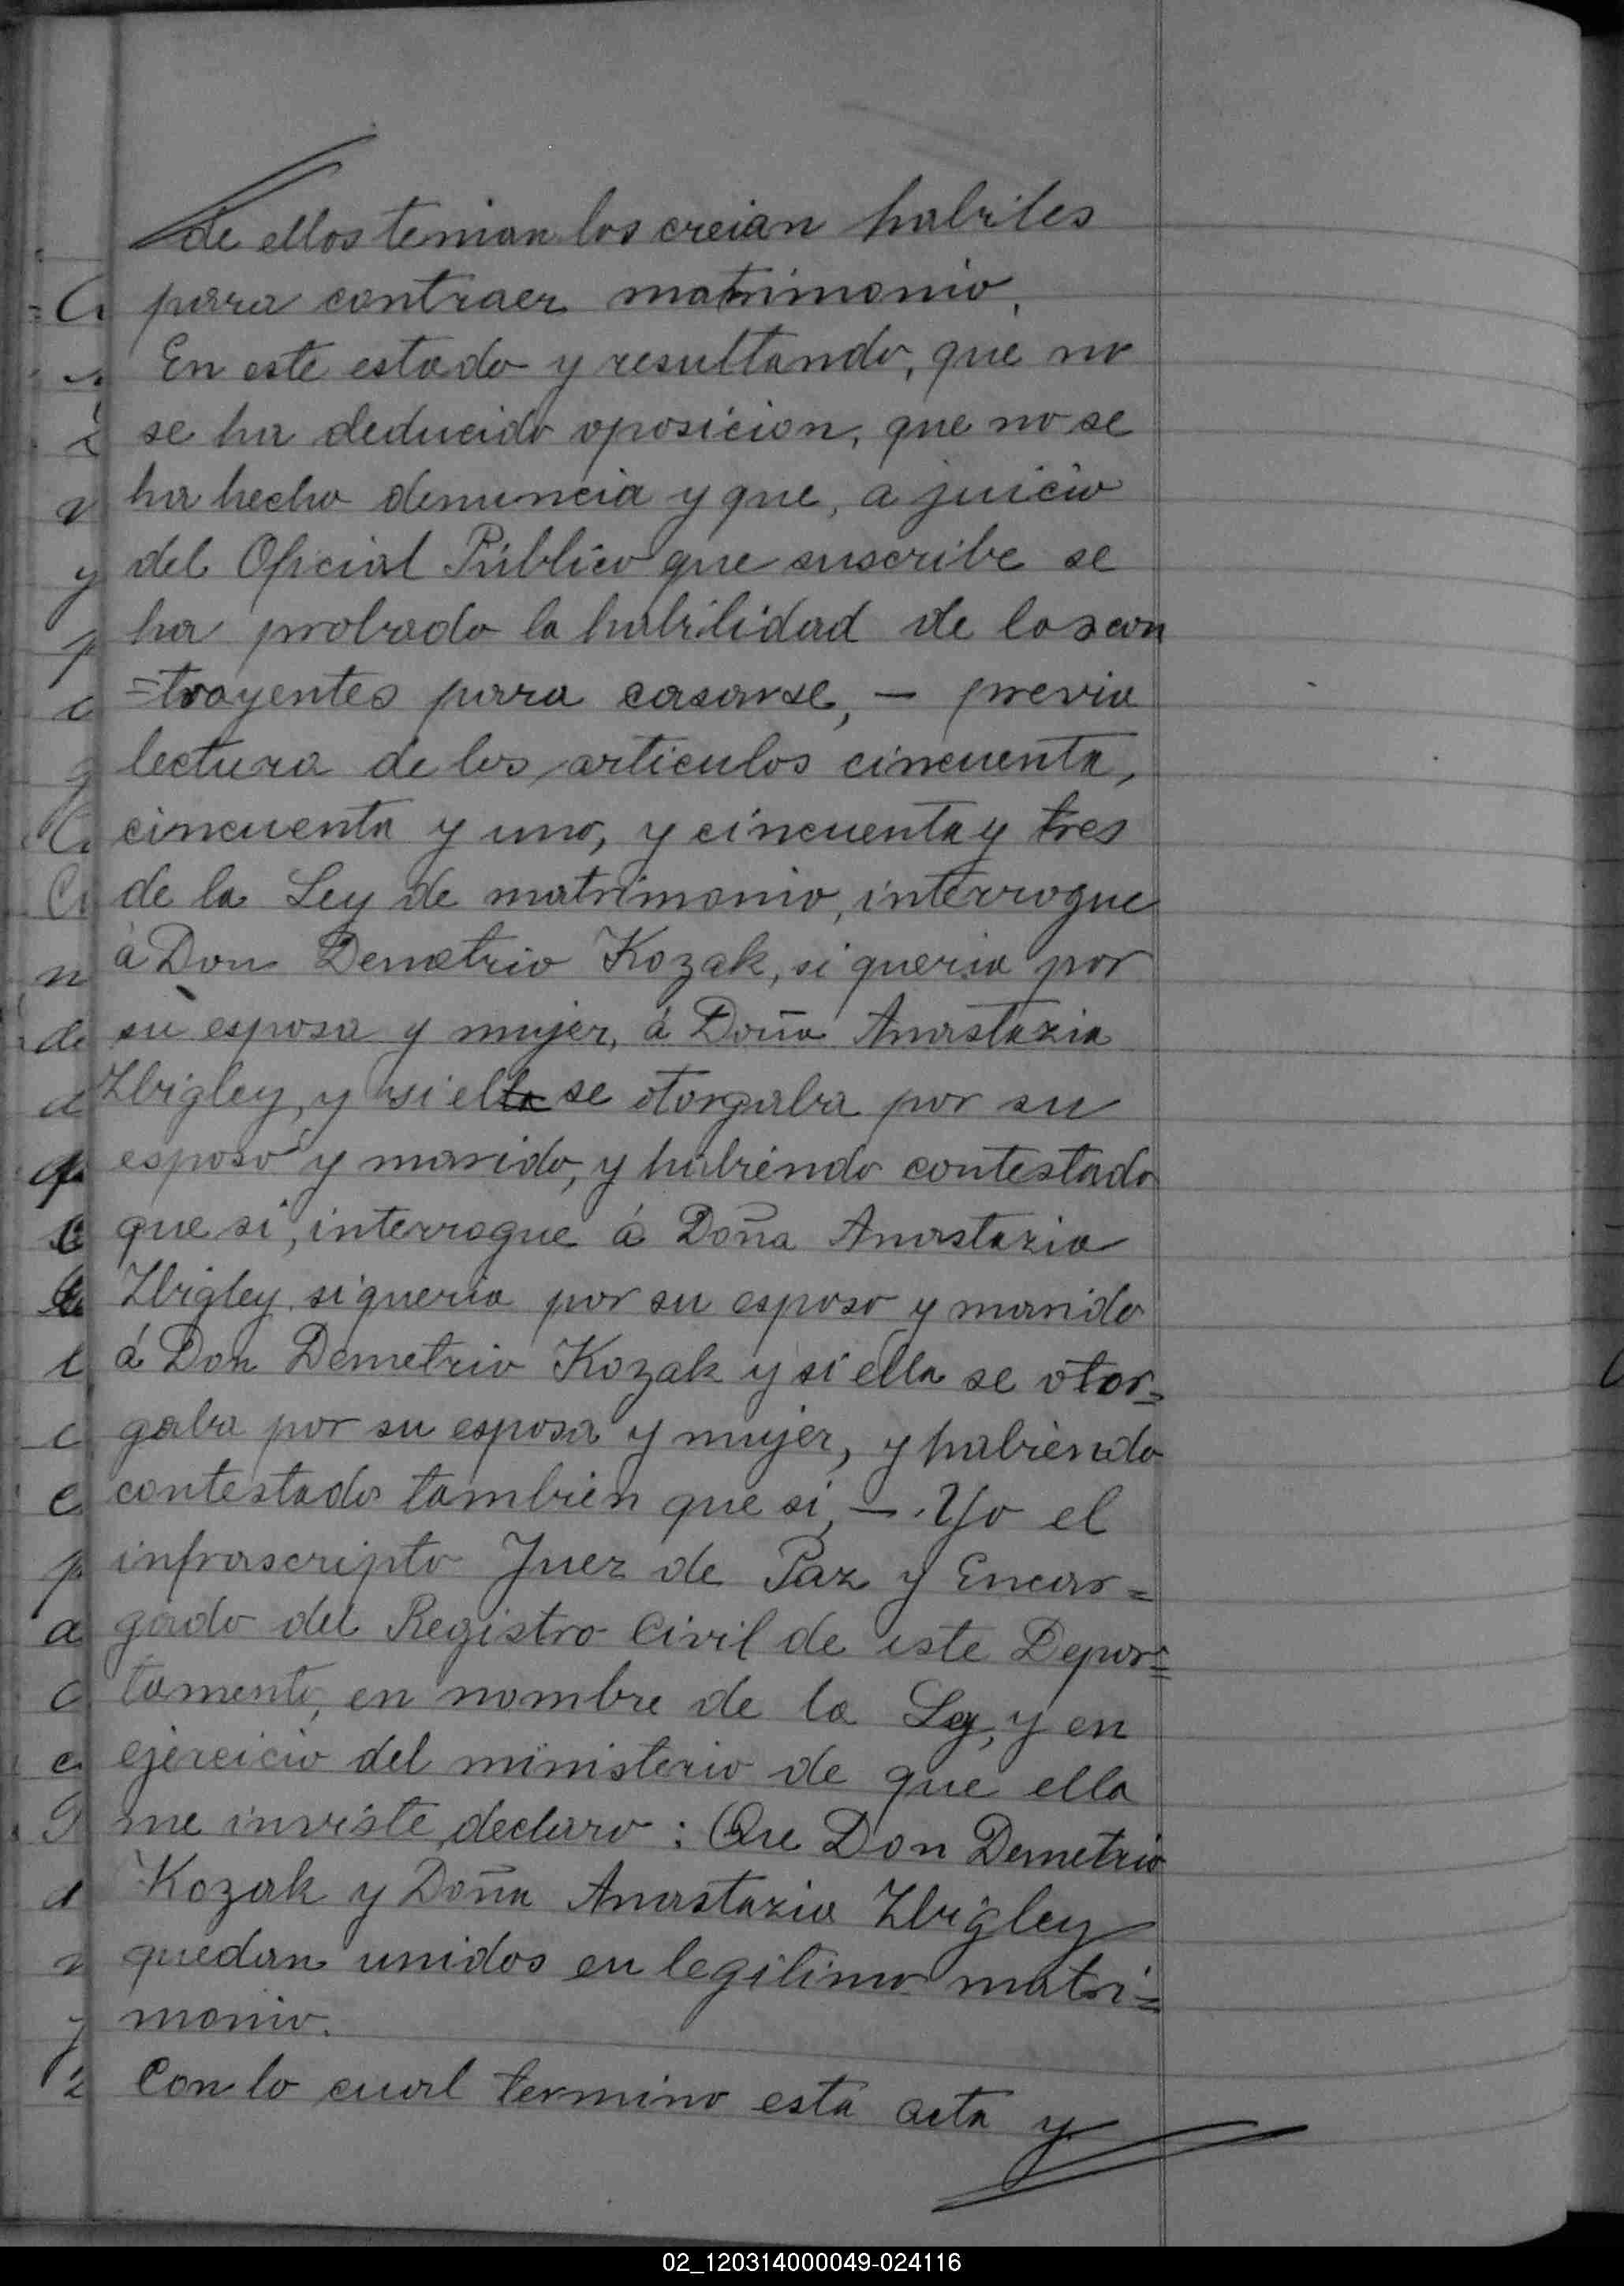 de ellos tenian los creian habiles
para contraer matrimonio.
En este estado y resultando, que no
se ha deducido oposicion, que no se
ha hecho denuncia y que, a juicio
del Oficial Público que suscribe se
ha probado la habilidad de los con
=trayentes para casarse, — previa
lectura de los articulos cincuenta,
cincuenta y uno, y cincuenta y tres
de la Ley de matrimonio, interrogue
á Don Demetrio Kozak, si queria por
su esposa y mujer, á Doña Anastazia
Zbigley, y si el se otorgaba por su
esposo y marido, y habiendo contestado
que si, interrogue á Doña Anastazia
Zbigley si queria por su esposo y marido
á Don Demetrio Kozak y si ella se otor=
gaba por su esposa y mujer, y habiendo
contestado tambien que si, — Yo el
infrascripto Juez de Paz y Encar=
gado del Registro Civil de este Depar=
tamento, en nombre de la Ley, y en
ejercicio del ministerio de que ella
me inviste, declaro: Que Don Demetrio
Kozak y Doña Anastazia Zbigley
quedan unidos en legitimo matri=
monio.
Con lo cual termino esta acta y
02_120314000049-024116